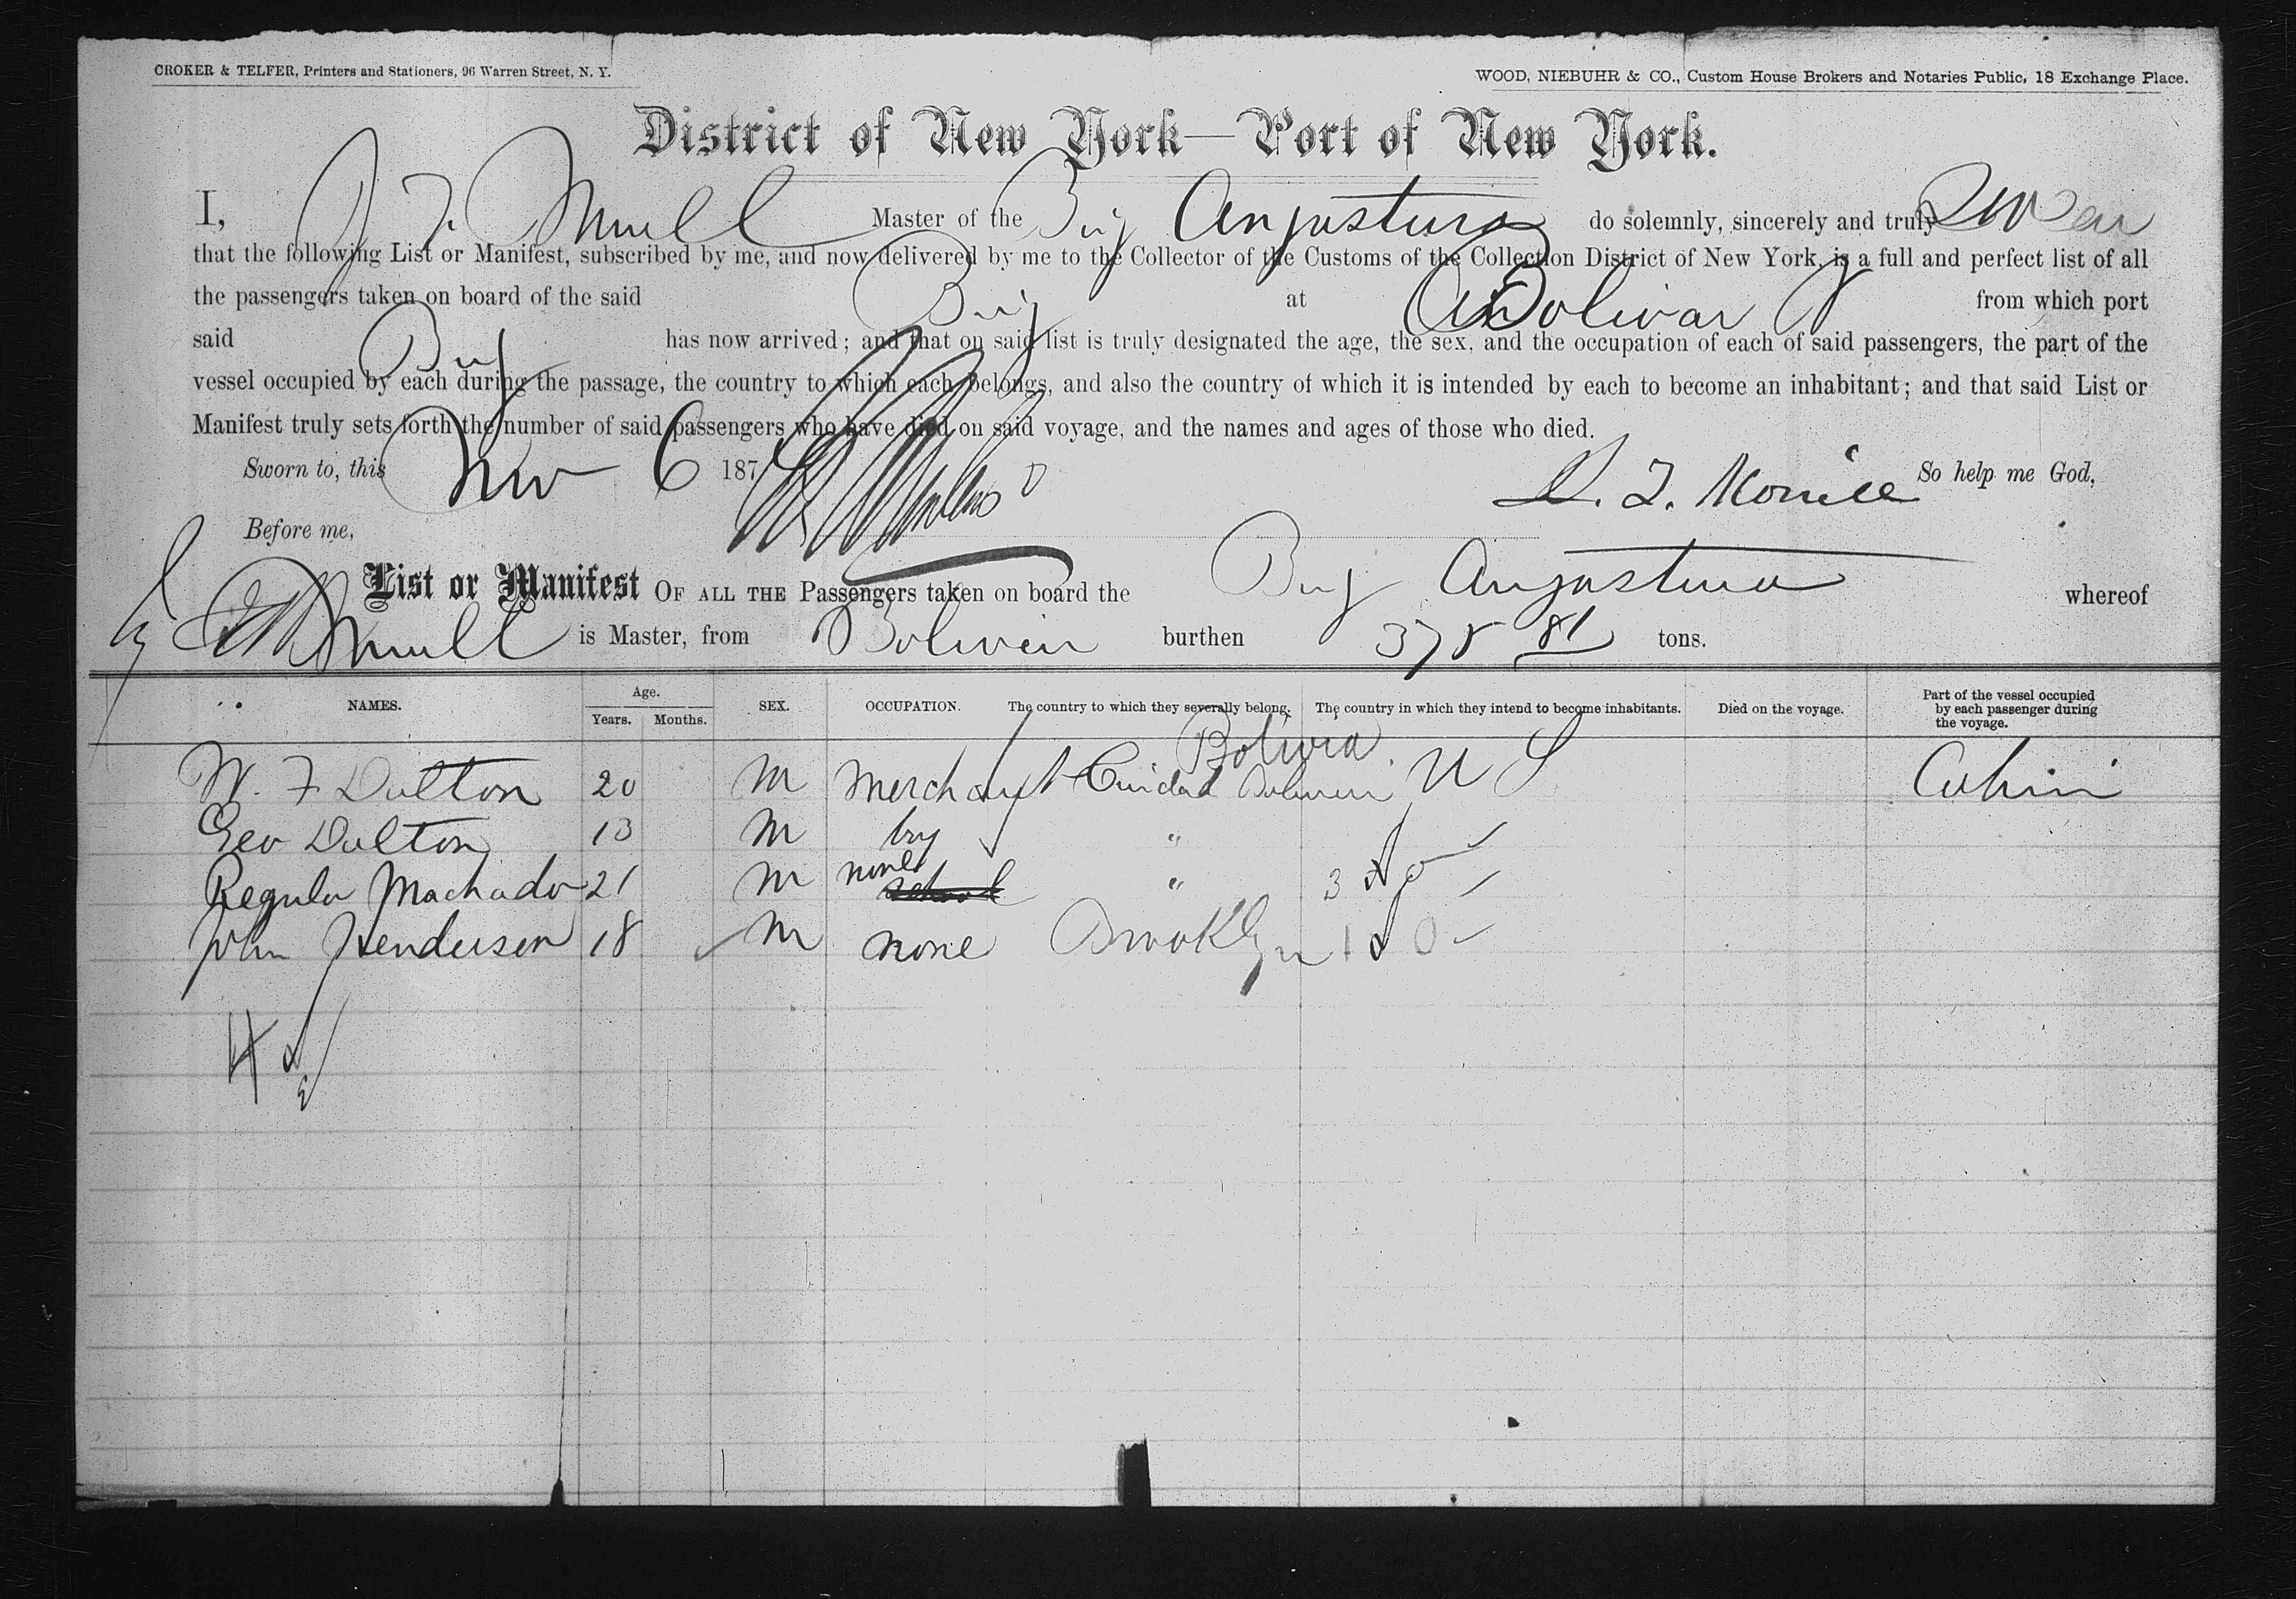 CROKER & TELFER, Printers and Stationers, 96 Warren Street, N. Y.
WOOD, NIEBUHR & CO., Custom House Brokers and Notaries Public, 18 Exchange Place.
District of New York—Port of New York.
I, Master of the Brig Angostura do solemnly, sincerely and truly swear
that the following List or Manifest, subscribed by me, and now delivered by me to the Collector of the Customs of the Collection District of New York, is a full and perfect list of all
the passengers taken on board of the said Brig at Bolivar from which port
said Brig has now arrived; and that on said list is truly designated the age, the sex, and the occupation of each of said passengers, the part of the
vessel occupied by each during the passage, the country to which each belongs, and also the country of which it is intended by each to become an inhabitant; and that said List or
Manifest truly sets forth the number of said passengers who have died on said voyage, and the names and ages of those who died.
Sworn to, this Nov 6 187 So help me God,
Before me,
List or Manifest OF ALL THE Passengers taken on board the Brig Angostura whereof
is Master, from Bolivar burthen 378 81 tons.
NAMES. Age. Years. Months. SEX. OCCUPATION. The country to which they severally belong. The country in which they intend to become inhabitants. Died on the voyage. Part of the vessel occupied by each passenger during the voyage.
Bolivia
W. F Dalton 20 M Merchant Cuidad Bolivar U S Cabin
Geo Dalton 13 M boy "
Regulo Machado 21 M none "
John Henderson 18 M none Brooklyn